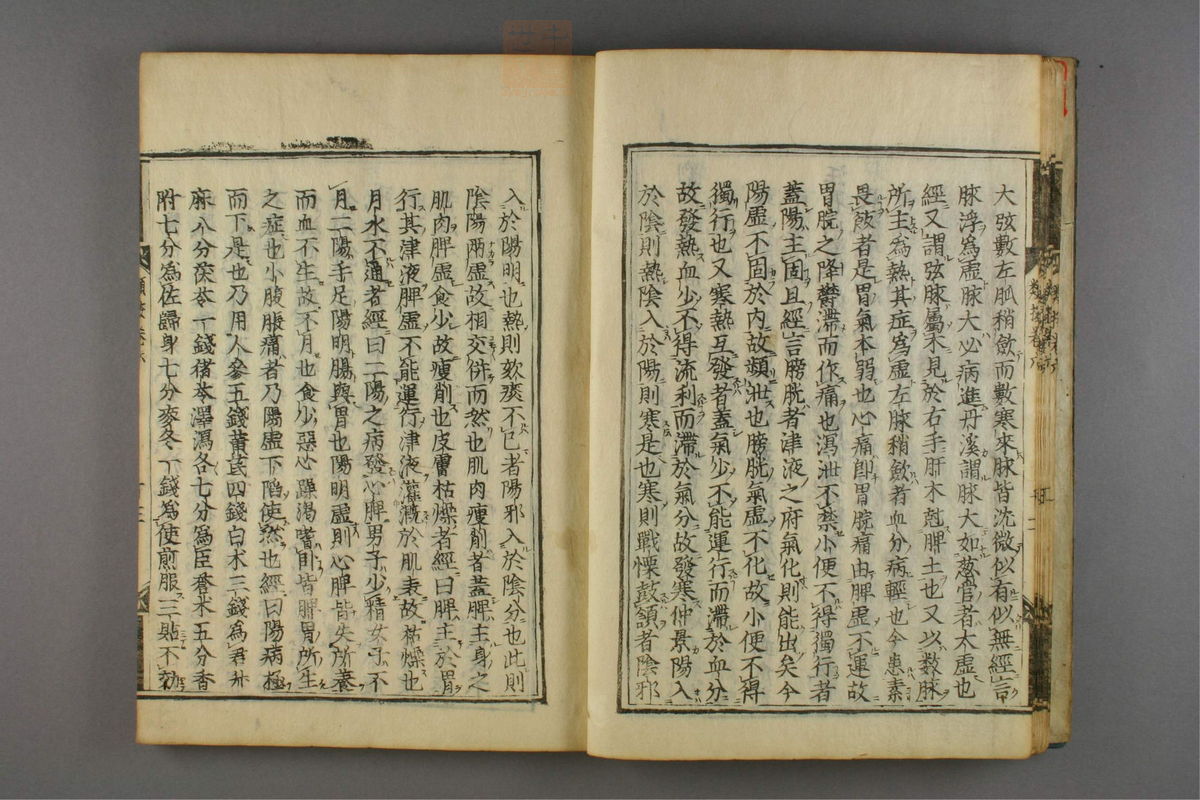 大弦數左胍稍斂而數寒來脉皆沈微似有似無經言
脉浮為虛脉大必病進丹溪謂脉大如葱管者大虛也
經又謂弦脉屬木見於右手肝木尅脾土也又以数脉
所主為熱其症為虛左脉稍斂者血分病輕也今患素
畏飲者是胃氣本弱也心痛即胃脘痛由脾虛不運故
胃脘之降鬱滯而作痛也瀉泄不禁小便不得獨行者
蓋陽主固且經言膀胱者津液之府氣化則能出矣今
陽虛不固於內故頻泄也膀胱氣虛不化故小便不得
獨行也又寒熱互發者蓋氣少不能運行而滯於血分
故發熱血少不得流利而滯於氣分故發寒仲景陽入
於陰則熱陰入於陽則寒是也寒則戰慄鼓頷者陰邪
入於陽明也熱則欬瘼不已者陽邪入於陰分也此則
陰陽兩虛故相交併而然也肌肉瘦削者蓋脾主身之
肌肉脾虛食少故瘦削也皮膚枯燥者經曰脾主於胃
行其津液脾虛不能運行津液灌漑於肌表故枯燥也
月水不通者經曰二陽之病發心脾男子少精女子不
月二陽手足陽明腸與胃也陽明虛則心脾皆失所養
而血不生故不月也食少惡心躁渴嗜卧皆脾胃所生
之症也小腹脹痛者乃陽虛下陷使然也經曰陽病極
而下是也乃用人參五錢黄芪四錢白木三錢為君升
麻八分茯苓一錢猪苓澤瀉各七分為臣蒼木五分香
附七分為佐歸身七分麥冬一錢為使煎服三貼不効
類案卷六